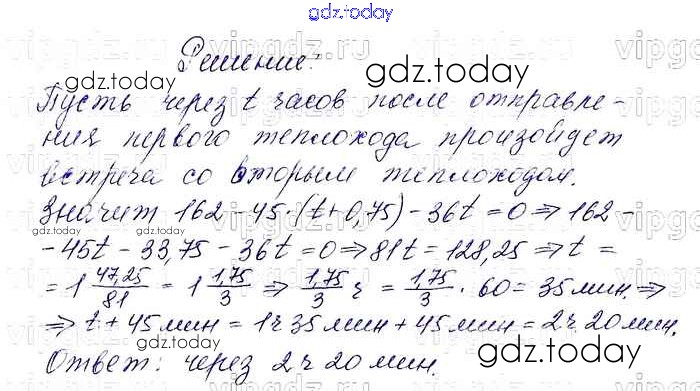 gdz.today
Решение:
gdz.today
gdz.today
Пусть через t часов после отправле-
ния первого теплохода произойдет
встреча со вторым теплоходом.
Значит 162 - 45·(t+0,75) - 36t = 0 ⇒ 162 -
gdz.today
- 45t - 33,75 - 36t = 0 ⇒ 81t = 128,25 ⇒ t =
= 1 47,25/81 = 1 1,75/3 ⇒ 1,75/3 ч = 1,75/3 · 60 = 35 мин. ⇒
⇒ t + 45 мин = 1ч 35 мин + 45 мин = 2ч 20 мин.
Ответ: через 2ч 20 мин.
gdz.today
gdz.today